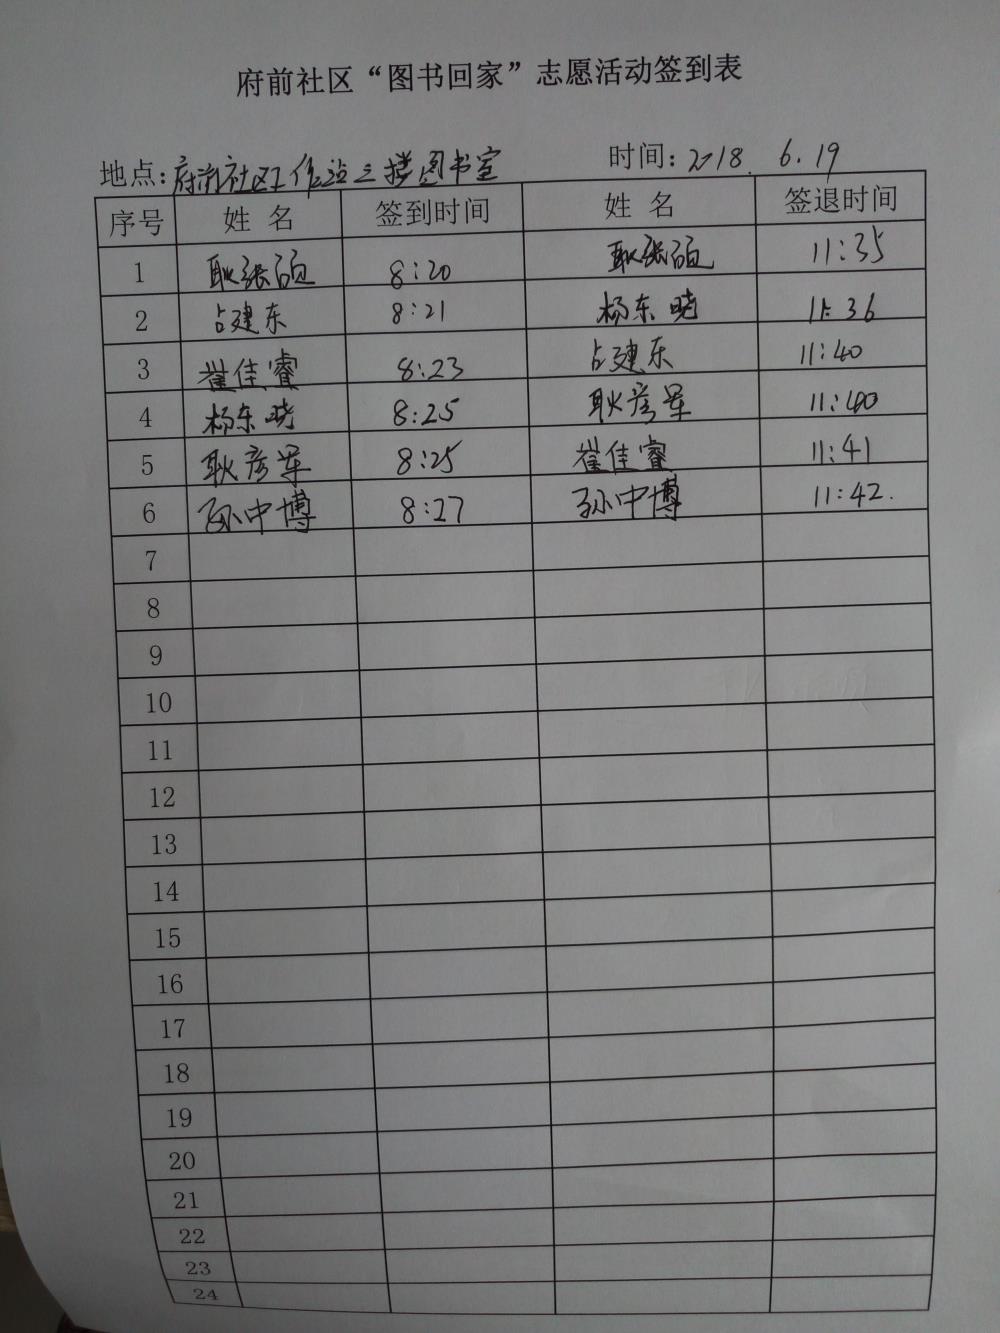 府前社区“图书回家”志愿活动签到表
地点:府前社区工作站三楼图书室 时间:2018. 6.19
序号 姓 名 签到时间 姓 名 签退时间
1 耿张 8:20 耿张 11:35
2 占建东 8:21 杨东晓 11:36
3 崔佳睿 8:23 占建东 11:40
4 杨东晓 8:25 耿彦军 11:40
5 耿彦军 8:25 崔佳睿 11:41
6 孙中博 8:27 孙中博 11:42.
7
8
9
10
11
12
13
14
15
16
17
18
19
20
21
22
23
24